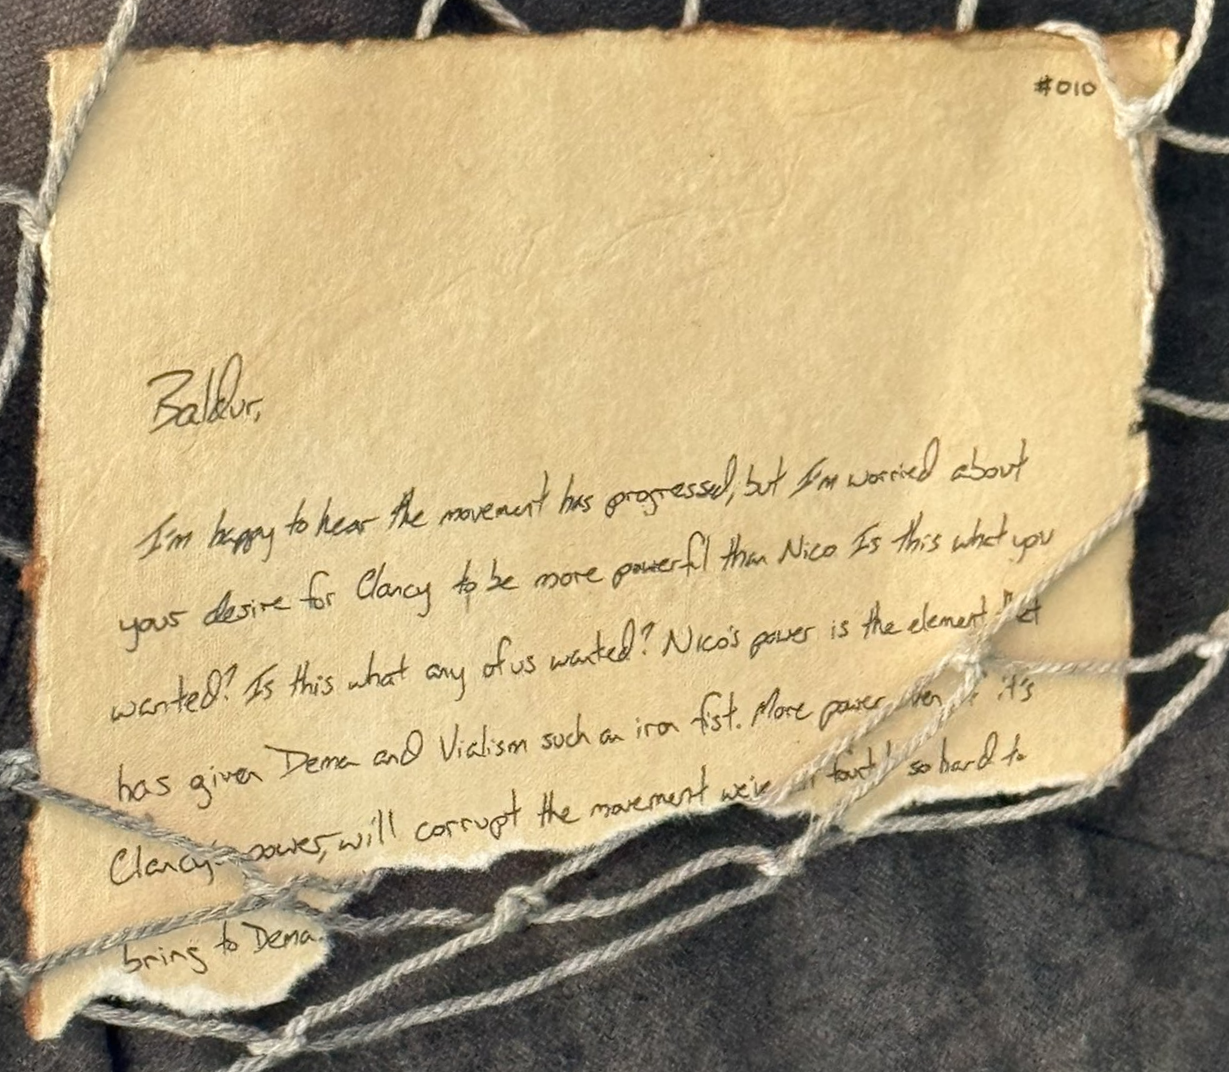 #010
Baldur,
I'm happy to hear the movement has progressed, but I'm worried about
your desire for Clancy to be more powerfl than Nico Is this what you
wanted? Is this what any of us wanted? Nico's power is the element
has given Dema and Vialism such an iron fist. More power it's
Clancy's power, will corrupt the movement we've so hard to
bring to Dema.